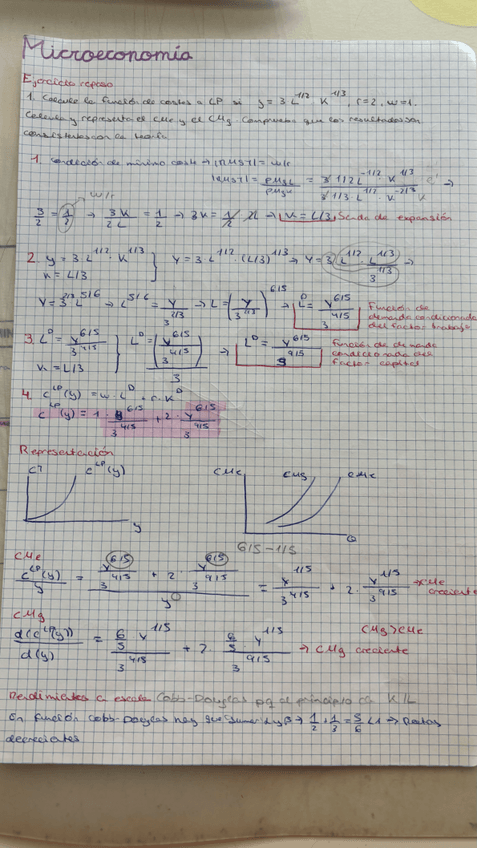 Microeconomía
Ejercicio repaso
1. Calcula la función de costes a LP si y = 3 L^1/2 K^1/3, r=2, w=1.
Calcula y representa el CMe y el CMg. Comprueba que los resultados son
consistentes con la teoría.
1. Condición de mínimo coste → |RMST| = w/r
|RMST| = PMgL/PMgK = (3·1/2 L^-1/2 · K^1/3)/(3·1/3·L^1/2 · K^-2/3) →
w/r
3/2 = 1/2 → 3K/2L = 1/2 → 3K = 1/2 · 2L → K = L/3 Senda de expansión
2. y = 3·L^1/2 · K^1/3 } Y = 3·L^1/2 · (L/3)^1/3 → Y = 3 · L^1/2 · L^1/3/3^1/3 →
K = L/3
Y = 3^2/3 L^5/6 → L^5/6 = Y/3^2/3 → L = (Y/3^2/3)^6/5 → L^D = Y^6/5/3^4/5 Función de
demanda condicionada
del factor trabajo
3. L^D = Y^6/5/3^4/5 } L^D = (Y^6/5/3^4/5)/3 → L^D = Y^6/5/3^9/5 Función de demanda
condicionada del
factor capital
K = L/3
4. C^LP (y) = w · L^D + r · K^D
C^LP (y) = 1 · Y^6/5/3^4/5 + 2 · Y^6/5/3^9/5
Representación
CT
C^LP (y)
y
CMe
CMg
CMe
Q
6/5 - 1/5
CMe
C^LP(y)/y = (Y^6/5/3^4/5 + 2 · Y^6/5/3^9/5)/y = Y^1/5/3^4/5 + 2 · Y^1/5/3^9/5 → CMe
creciente
CMg
d(C^LP(y))/d(y) = 6/5 Y^1/5/3^4/5 + 2 · 6/5 Y^1/5/3^9/5 → CMg creciente
CMg > CMe
Rendimientos a escala Cobb-Douglas pq al principio da K/L
En función cobb-Douglas hay que sumar α y β → 1/2 + 1/3 = 5/6 < 1 → Rectos
decrecientes